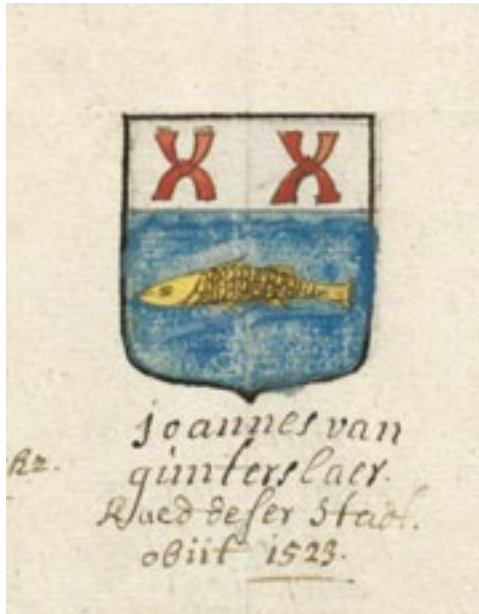 joannes van
gunterslaer.
Raed deser Stadt.
obiit 1523.